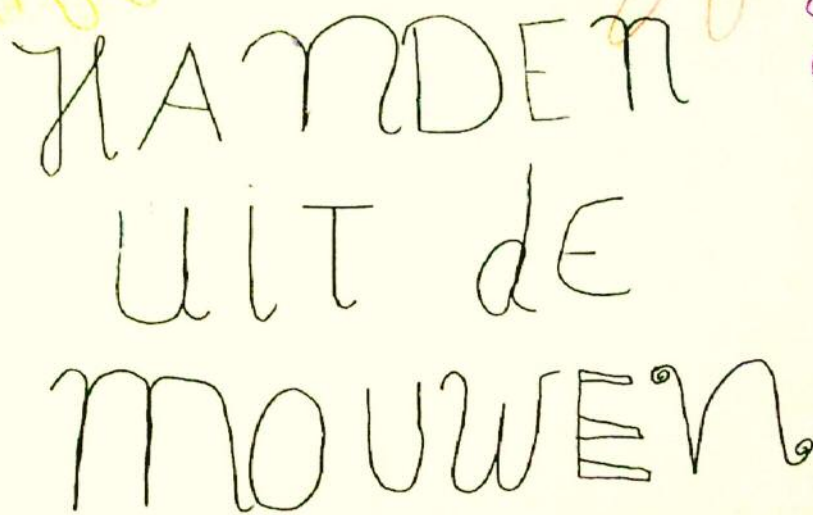 HANDEN
UIT dE
MOUWEN